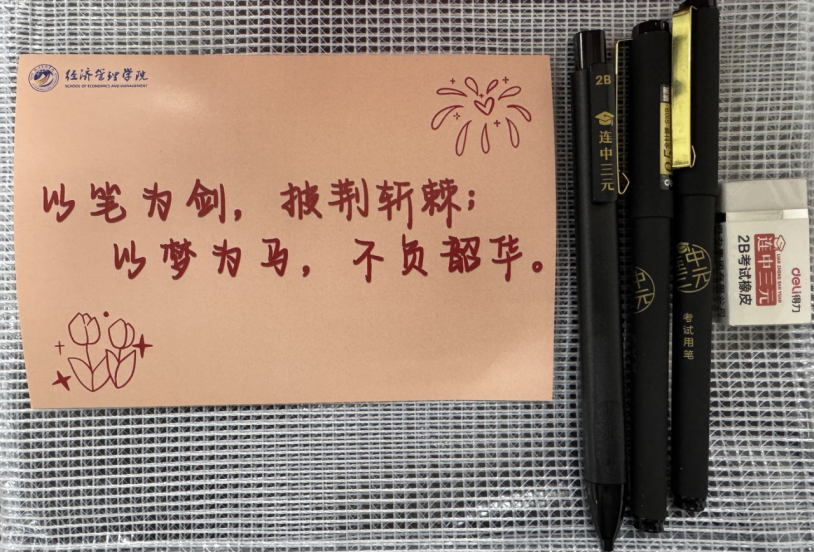 经济管理学院
SCHOOL OF ECONOMICS AND MANAGEMENT
以笔为剑，披荆斩棘；
以梦为马，不负韶华。
2B
连中三元
中元
考试用笔
deli得力
连中三元
2B考试橡皮